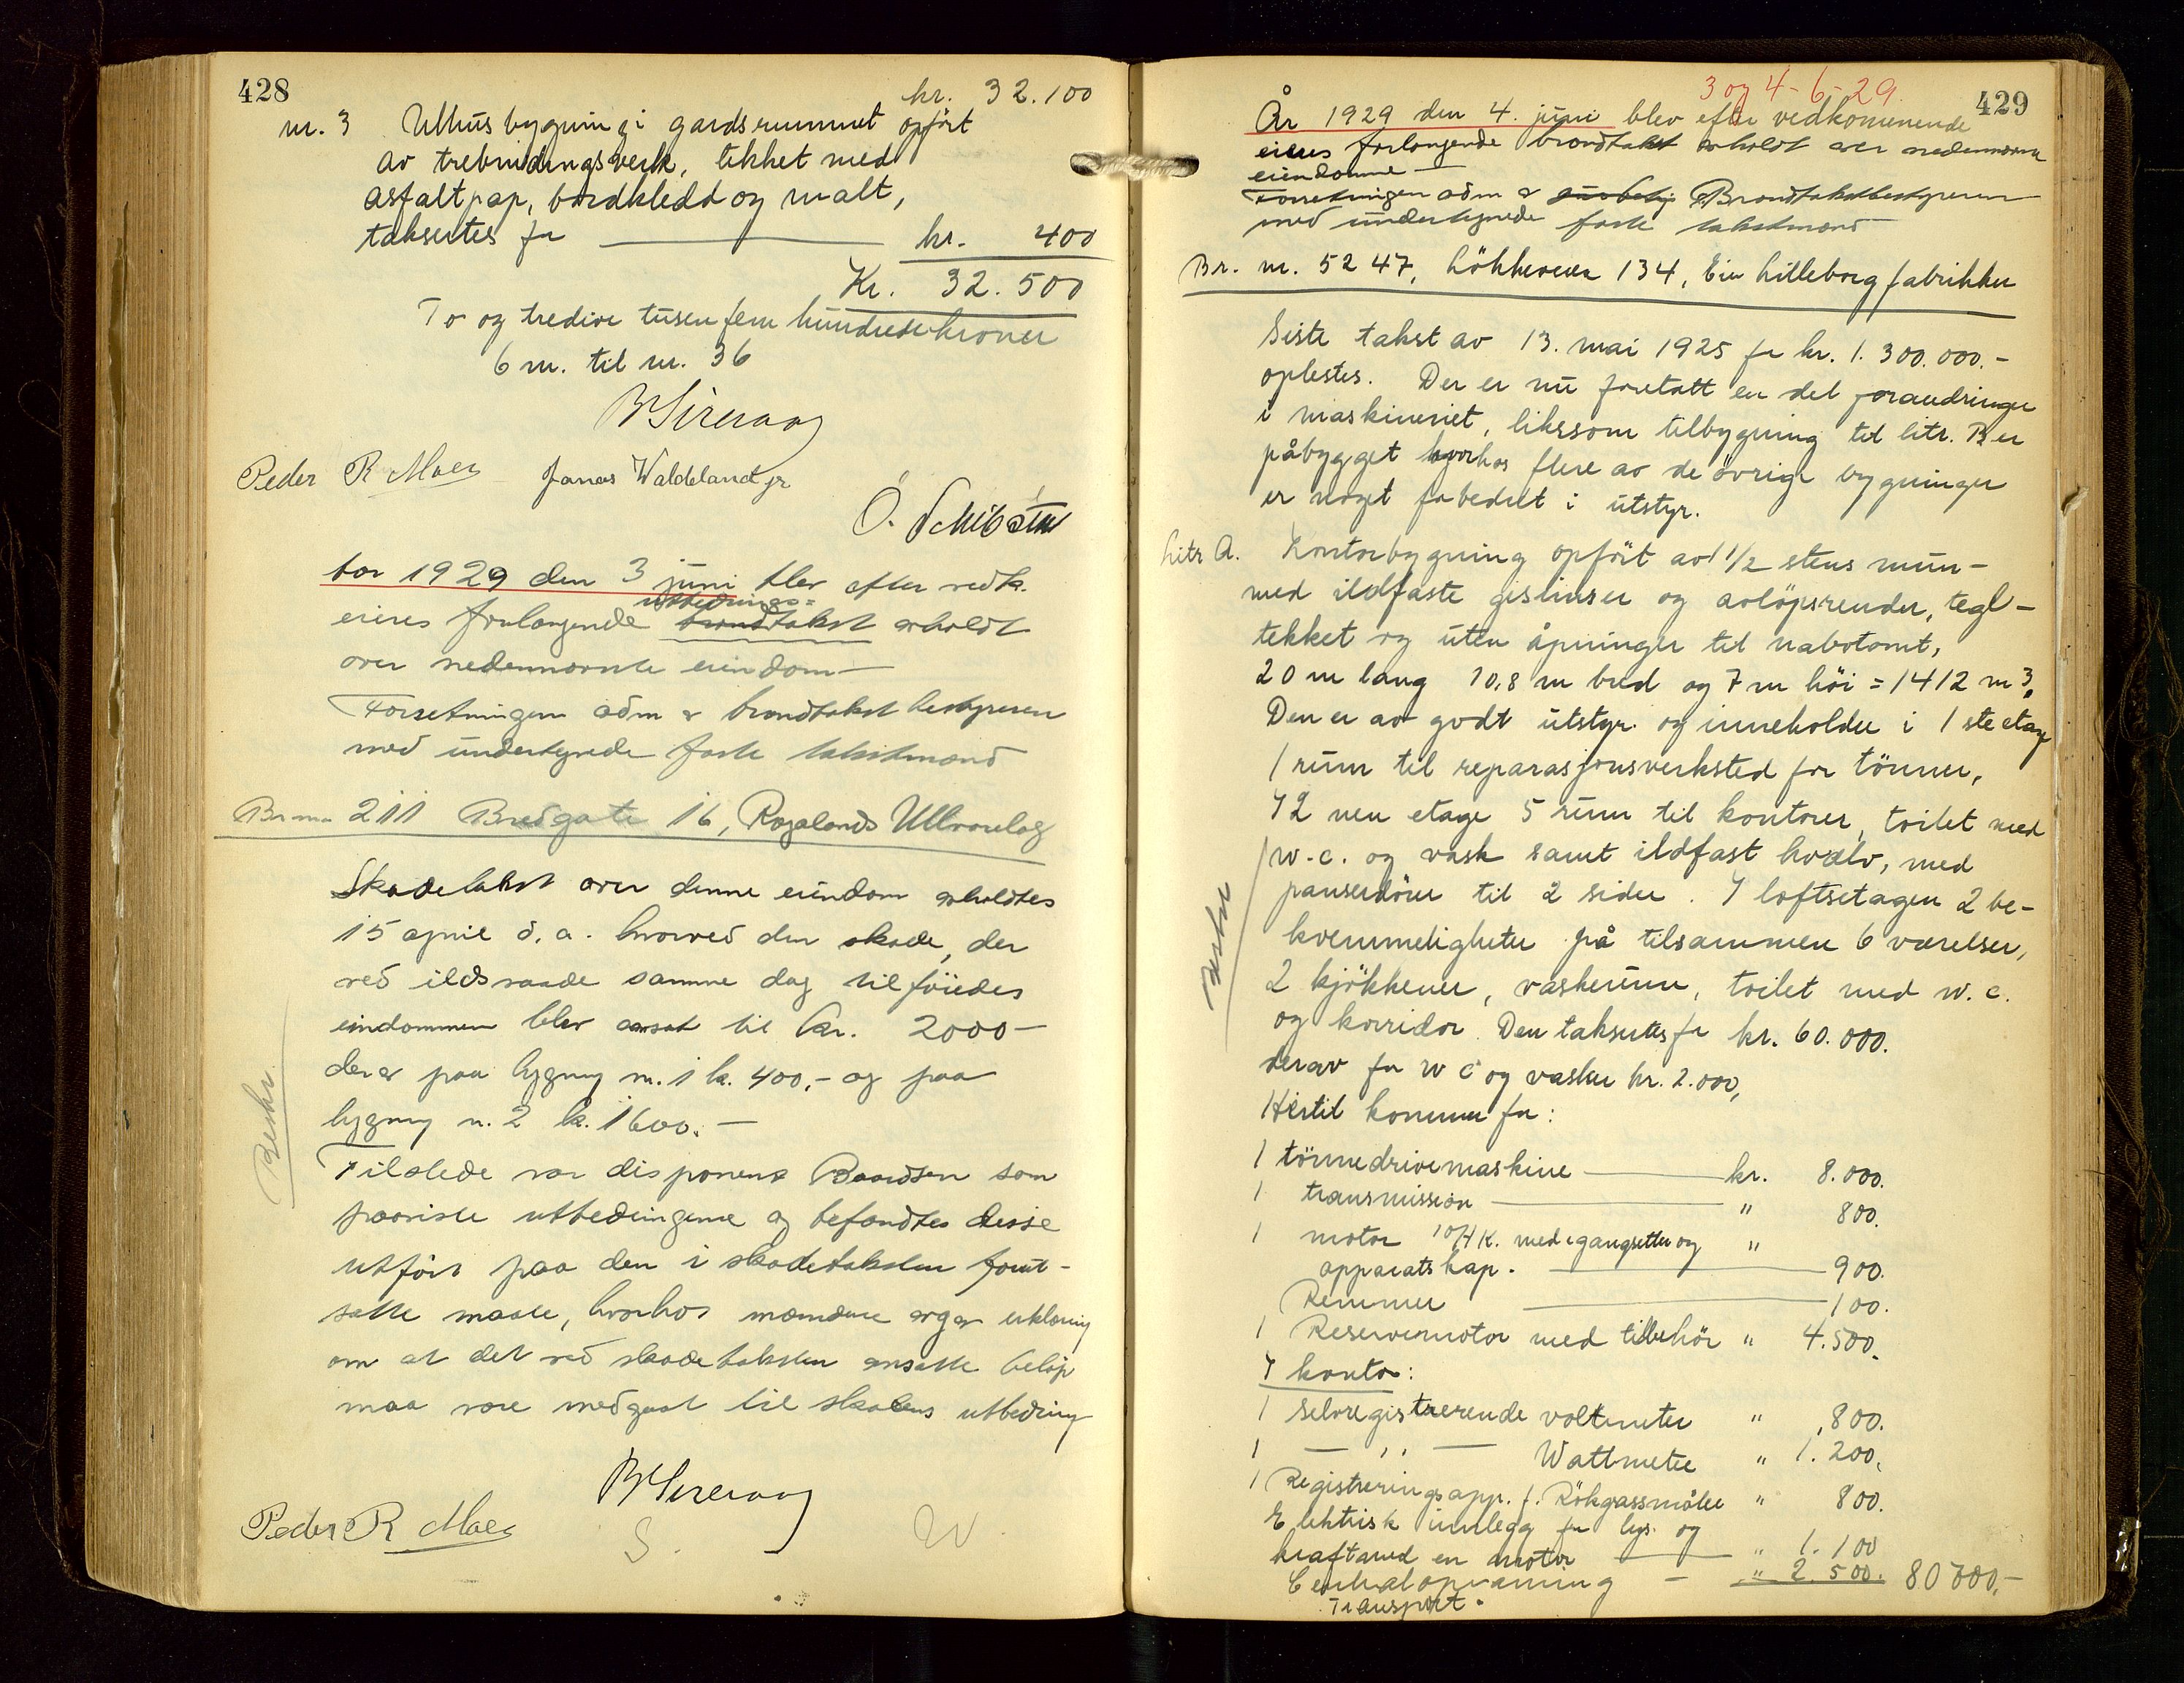 428
kr. 32.100
nr. 3 Uthusbygning i gardsrummet opført
av trebindingsverk, tekket med
asfaltpap, bordkledd og malt,
taksertes for kr. 400
Kr. 32.500
To og tredive tusen fem hundrede kroner
6 m. til nr. 36
Peder R Moes Jonas Waldeland jr
1929 den 3 juni blev efter vedk.
utbedrings=
eieres forlangende brandtakst avholdt
over nedennævnte eiendom
Forretningen adm. av brandtakstbestyreren
med undertegnede faste takstmænd
Br. nr. 211 Bredgate 16, Rogalands Ullvarelag
Skadetakst over denne eiendom avholdtes
15 april d. a. hvorved den skade, der
ved ildsvaade samme dag tilføiedes
eiendommen blev ansat til kr. 2000-
derav paa bygning nr. 1 kr. 400,- og paa
bygning nr. 2 kr. 1600.-
Beskr.
Tilstede var disponent Baardsen som
paaviste utbedringerne og befandtes disse
utført paa den i skadetaksten forut-
satte maate, hvorhos mændene avgav erklæring
om at det ved skadetaksten ansatte beløp
maa være medgaat til skadens utbedring
Peder R Moes
S. W
429
3 og 4-6-29.
År 1929 den 4. juni blev efter vedkommende
eieres forlangende brandtakst avholdt over nedennævnte
eiendomme
Forretningen adm. av Brandtakstbestyreren
med undertegnede faste takstmænd
Br. nr. 5247, Løkkeveien 134, Eier Lilleborg fabrikker
Siste takst av 13. mai 1925 for kr. 1.300.000.-
oplestes. Der er nu foretatt en del forandringer
i maskineriet, likesom tilbygning til litr. B er
påbygget hvorhos flere av de øvrige bygninger
er noget forbedret i utstyr.
Litr A. Kontorbygning opført av 1 1/2 stens mur-
med ildfaste gesimser og avløpsrender, tegl-
tekket og uten åpninger til nabotomt,
20 m lang 10,8 m bred og 7 m høi = 1412 m3.
Den er av godt utstyr og inneholder i 1ste etage
1 rum til reparasjonsverksted for tønner,
I 2nen etage 5 rum til kontorer, toilet med
w.c. og vask samt ildfast hvælv, med
panserdører til 2 sider. I loftsetagen 2 be-
kvemmeligheter på tilsammen 6 værelser,
2 kjøkkener, vaskerum, toilet med w.c.
og korridor. Den taksertes for kr. 60.000.
derav for w c og vasker kr. 2.000,
Beskr
Hertil kommer for:
1 tønnedrivemaskine kr. 8.000.
1 transmission " 800.
1 motor 10 HK. med igangsetter og "
apparatskap. 900.
Remmer 100.
1 Reservemotor med tilbehør " 4.500.
I kontor:
1 selvregistrerende voltmeter " 800.
1 — " — Wattmeter " 1.200.
1 Registreringsapp. f. Røkgassmåler " 800.
Elektrisk innlegg for lys og
kraft med en motor " 1.100
Centralopvarming " 2.500. 80700,-
Transport.